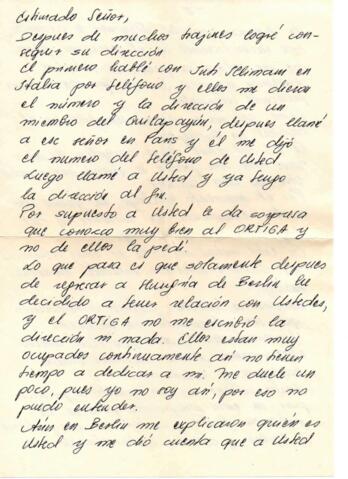 Estimado Señor,
Despues de muchos trajines logré con-
seguir su dirección
El primero hablé con Inti Illimani en
Italia por teléfono y ellos me dieron
el número y la dirección de un
miembro del Quilapayún, despues llamé
a ese señor en Paris y él me dijó
el numero del teléfono de Usted.
Luego llamé a Usted y ya tengo
la dirección al fin.
Por supuesto a Usted le da sorpresa
que conozco muy bien al ORTIGA y
no de ellos la pedí.
Lo que pasa es que solamente despues
de regresar a Hungria de Berlin he
decidido a tener relación con Ustedes,
y el ORTIGA no me escribió la
dirección ni nada. Ellos estan muy
ocupados continuamente asi no tienen
tiempo a dedicar a mi. Me duele un
poco, pues yo no soy así, por eso no
puedo entender.
en Berlin me explicaron quién es
Usted y me dió cuenta que a Usted